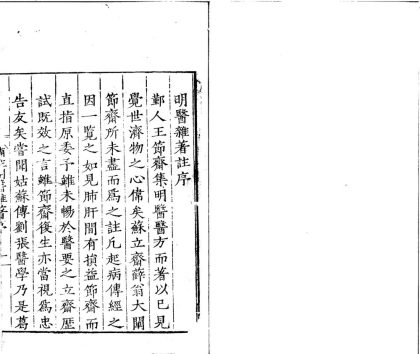 明醫雜著註序
鄞人王節齋集明醫醫方而著以已見
覺世濟物之心偉矣蘇立齋薛翁大闡
節齋所未盡而爲之註凡起病傳經之
因一覽之如見肺肝間有損益節齋而
直指原委予雖未暢於醫要之立齋歷
試既效之言雖節齋後生亦當視爲忠
告友矣嘗聞姑蘇傳劉張醫學乃是葛